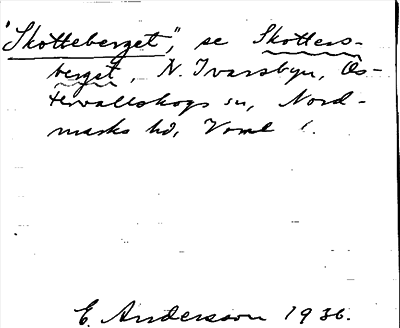 "Skotteberget", se Skotters-
berget, N. Ivarsbyn, Ös-
tervallskogs sn, Nord-
marks hd, Värml.
E. Andersson 1936.